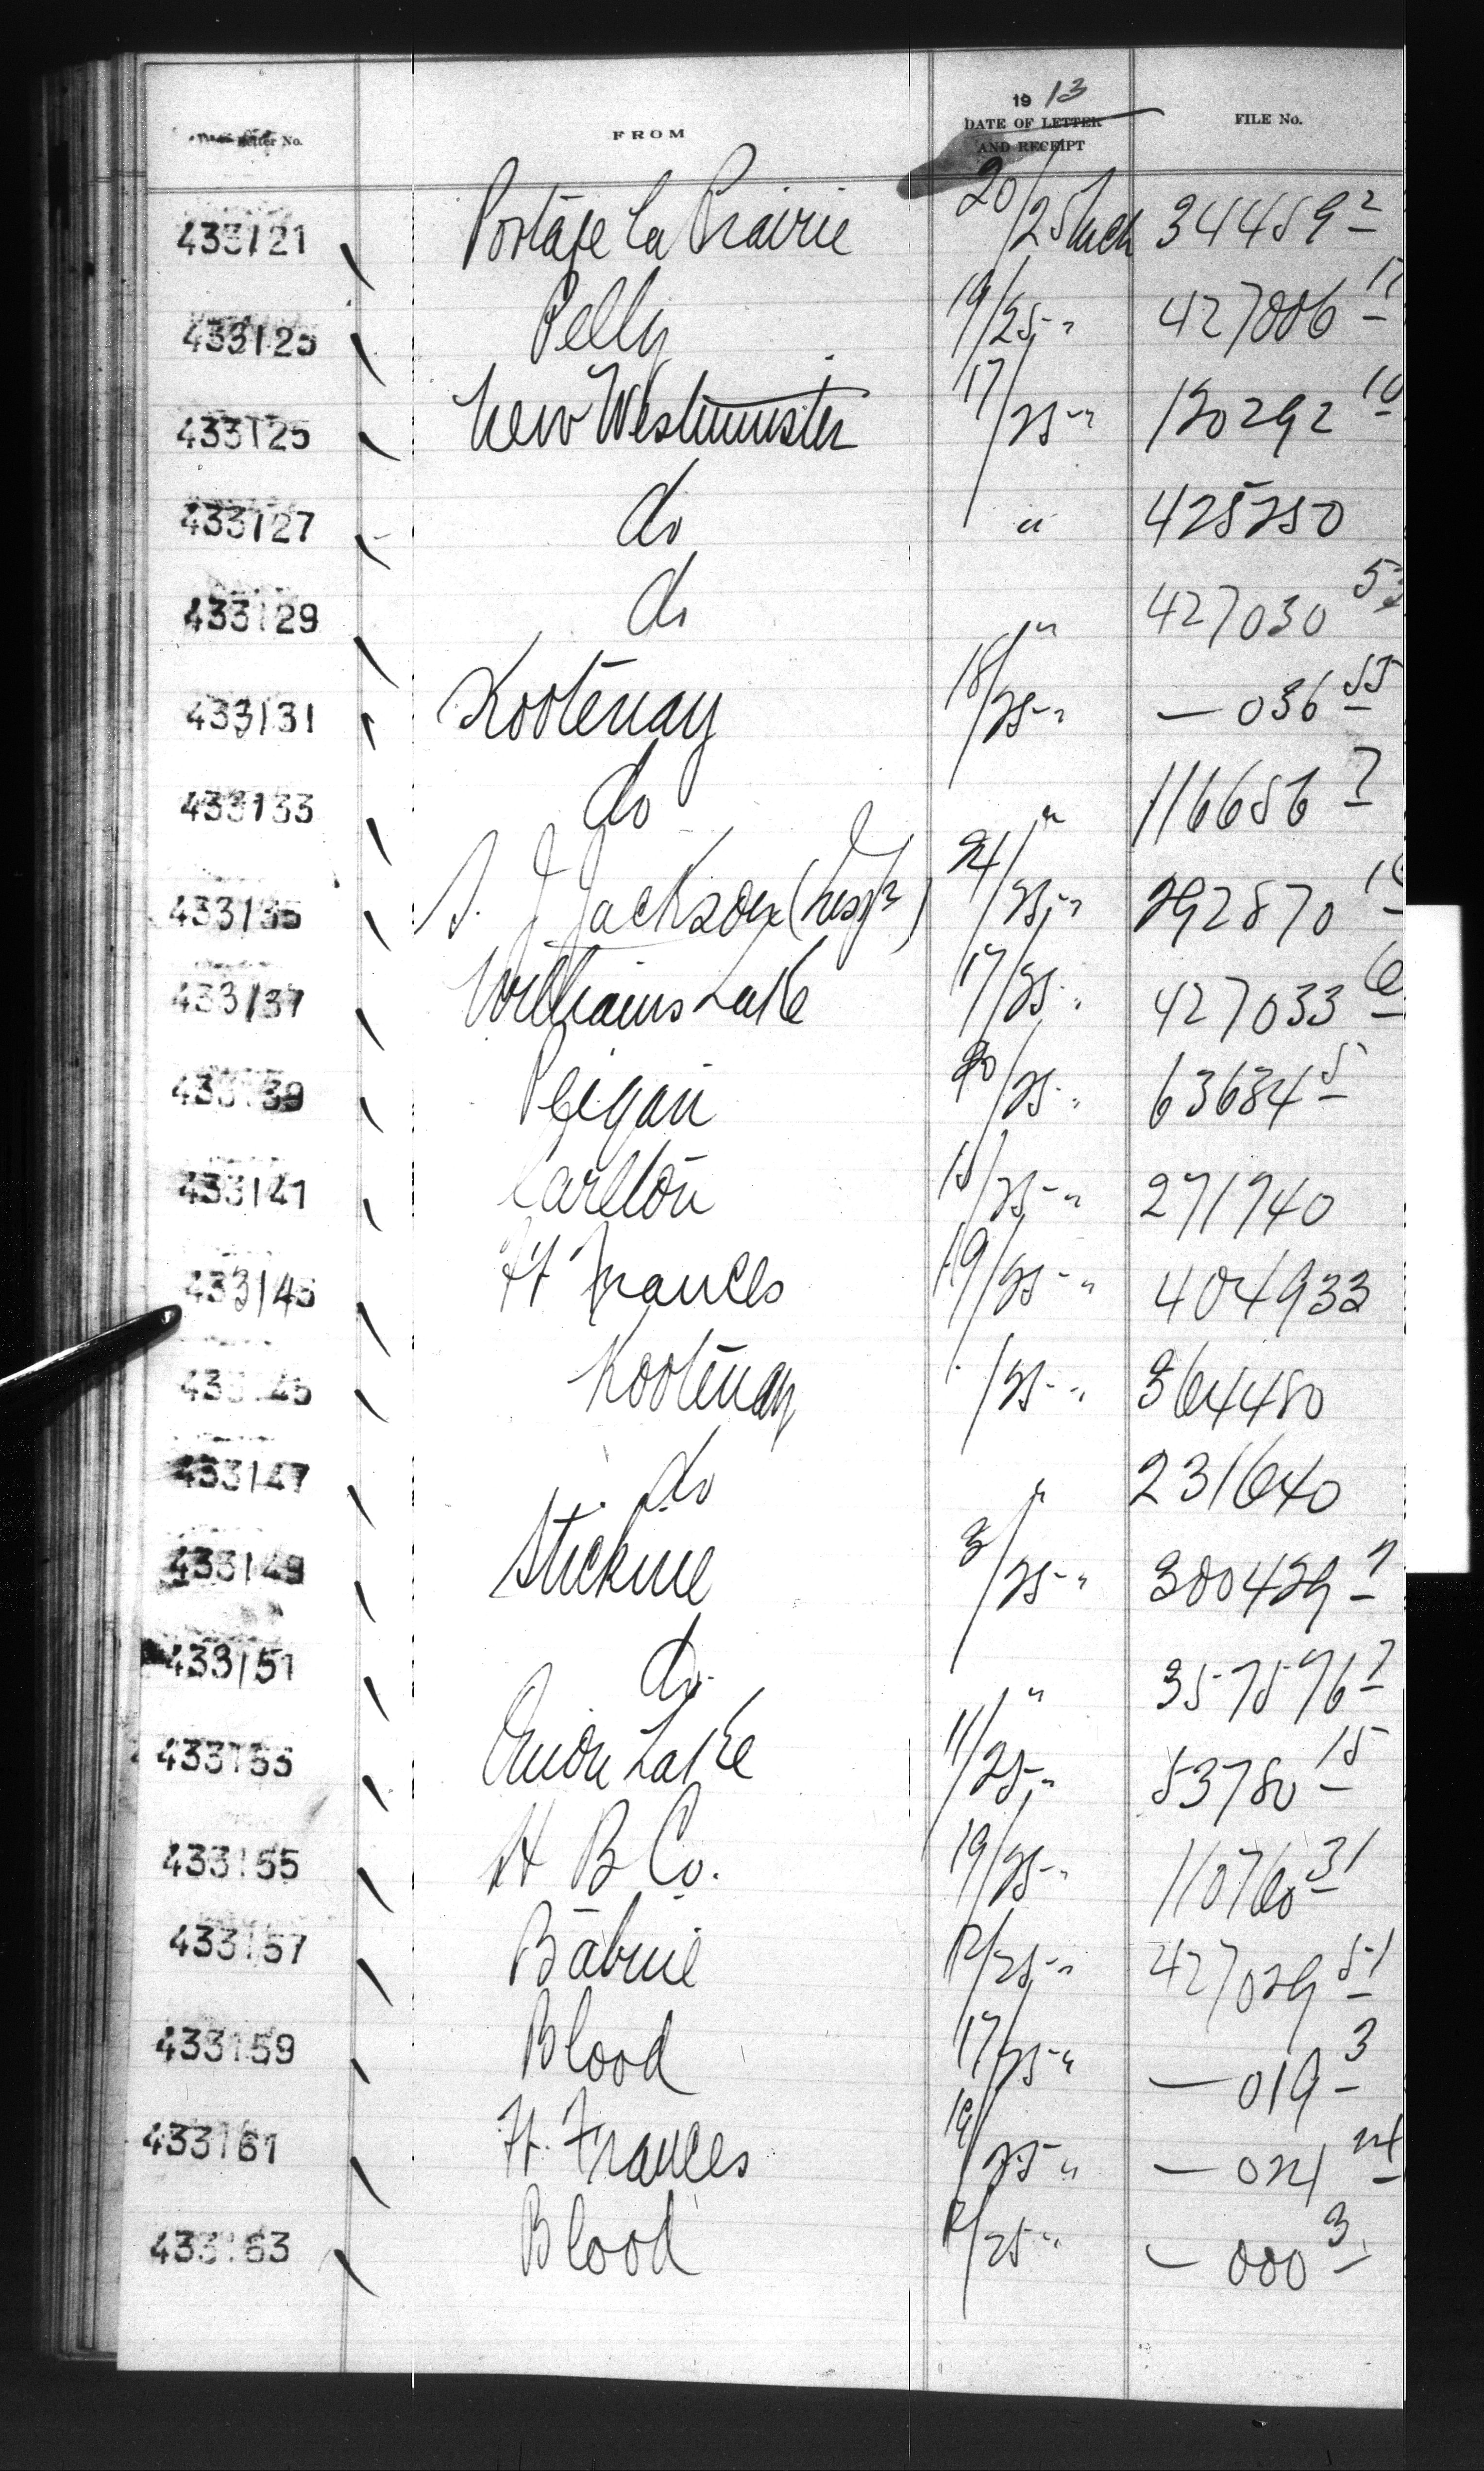 Letter No. FROM 1913 DATE OF LETTER AND RECEIPT FILE No.
433121 Portage la Prairie 20/25 Mch 344589 2
433123 Pelly 19/25 " 427006
433125 New Westminster 17/25 " 130292 10
433127 do " 425250
433129 do " 427030
433131 Kootenay 18/25 " — 036 55
433133 do " 116656 7
433135 S. J. Jackson 24/25 " 292870
433137 Williams Lake 17/25 " 427033 6
433139 Peigan 20/25 " 63684 5
433141 Carlton 15/25 " 271740
433143 Ft Frances 19/25 " 404933
433145 Kootenay /25 " 364480
433147 do " 231640
433149 Stickine 3/25 " 300429 7
433151 do " 357576 7
433153 Onion Lake 11/25 " 53780 15
433155 H B Co. 19/25 " 110760 31
433157 Babine 12/25 " 427029 51
433159 Blood 17/25 " — 019 3
433161 Ft. Frances 19/25 " — 021 24
433163 Blood 12/25 " — 000 3